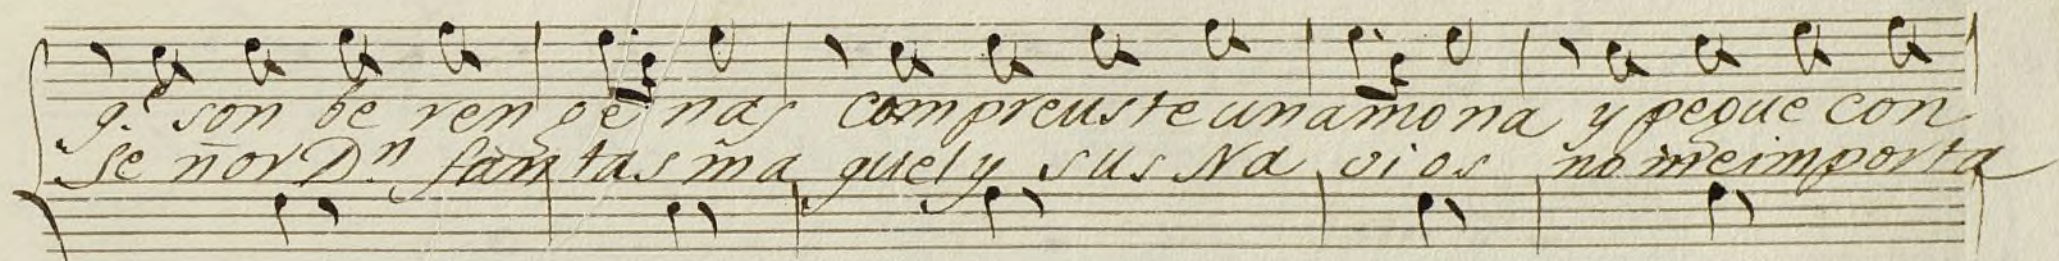 q.e son be ren ge nas compreusteunamona y pegue con
se ñor D.n fan tas ma quel y sus Na vios no meimporta